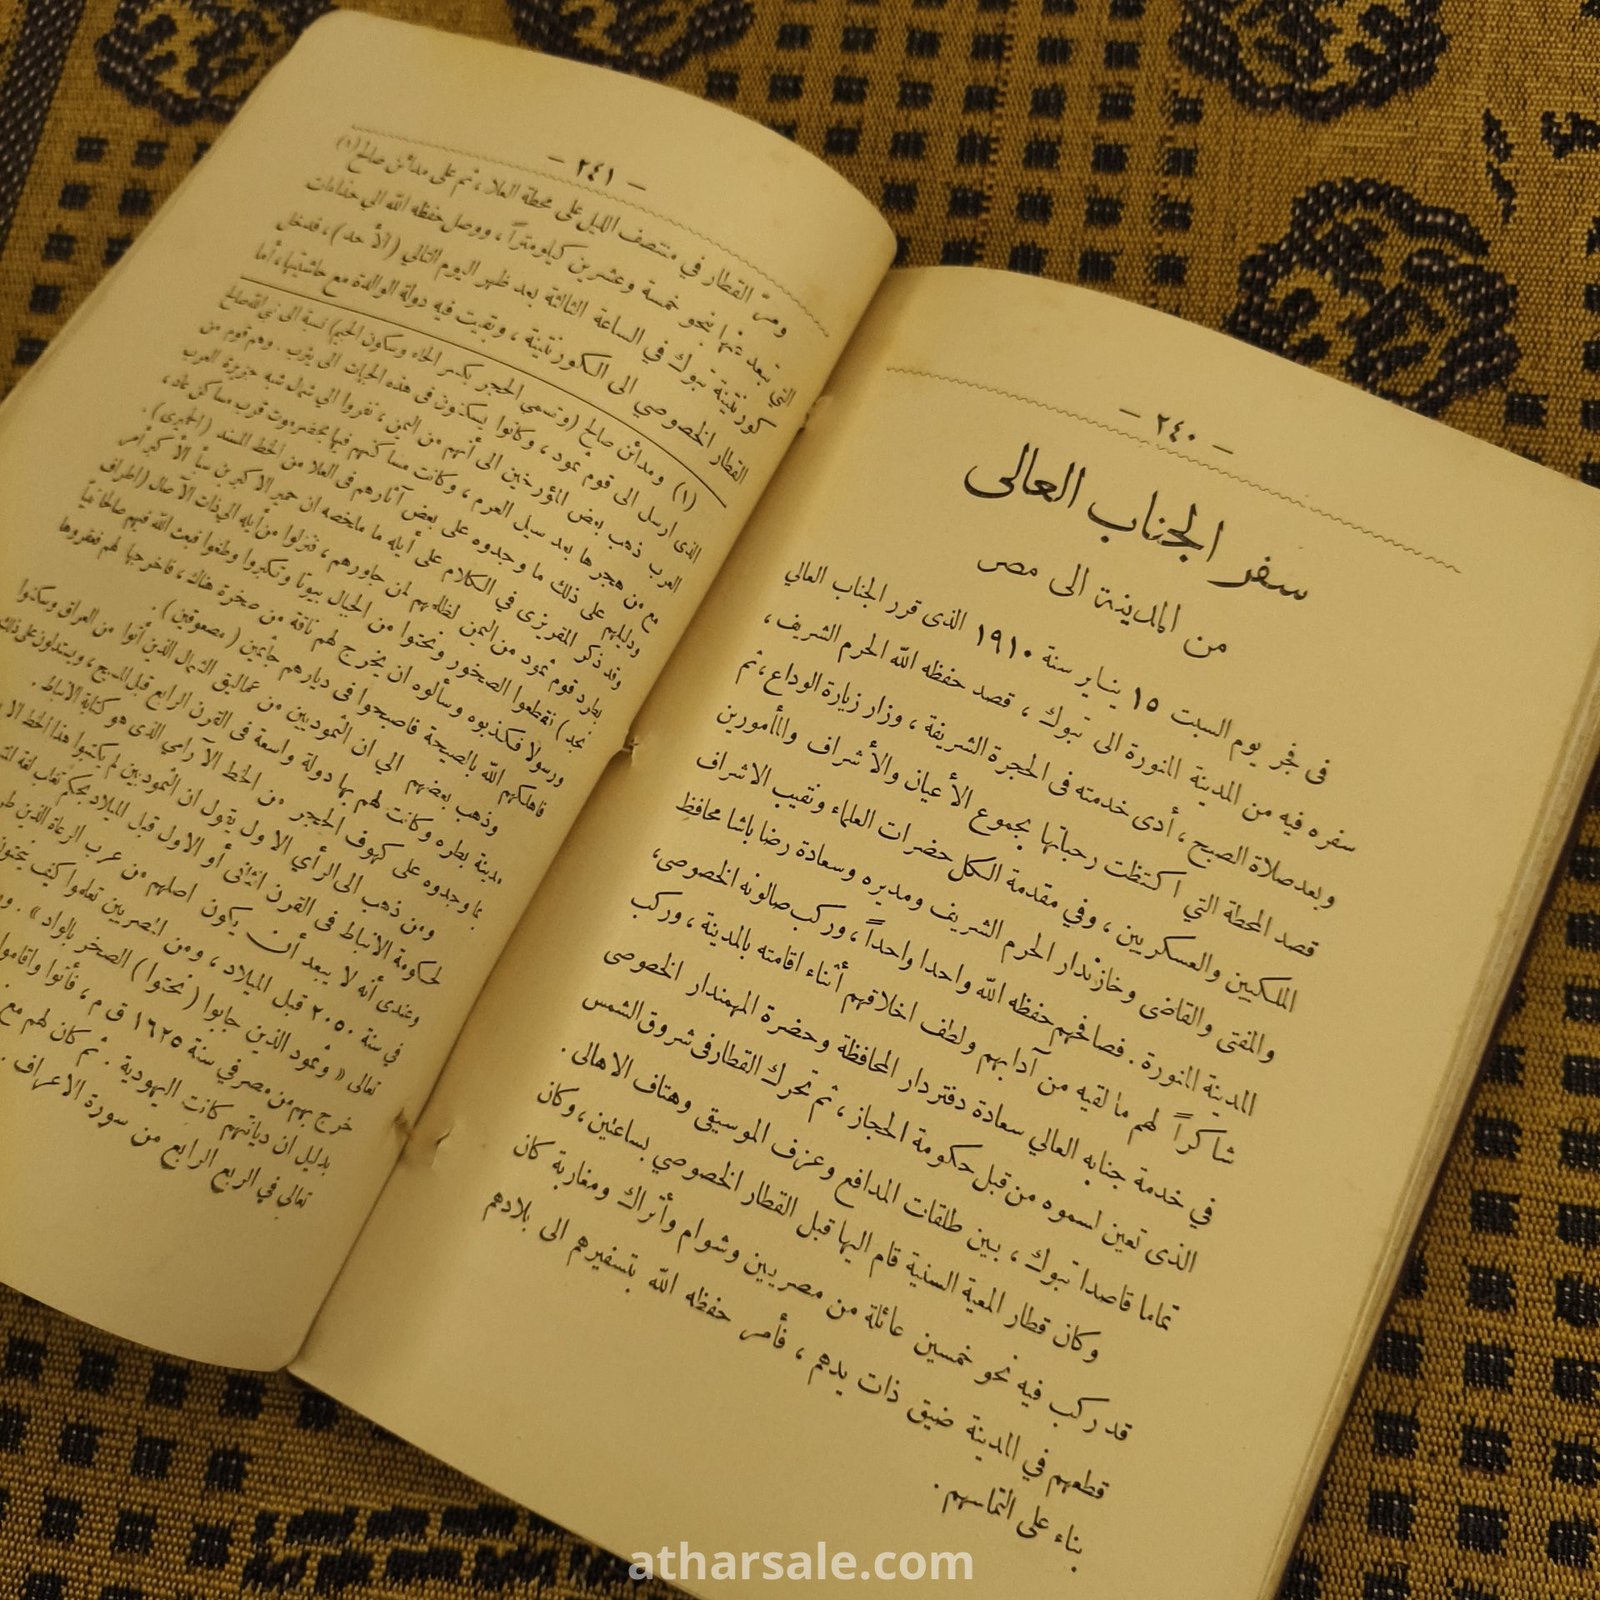 — ٢٤٠ —
سفر الجناب العالى
من المدينة الى مصر
فى فجر يوم السبت ١٥ يناير سنة ١٩١٠ الذى قرر الجناب العالي
سفره فيه من المدينة المنورة الى تبوك ، قصد حفظه الله الحرم الشريف ،
وبعد صلاة الصبح ، أدى خدمته فى الحجرة الشريفة ، وزار زيارة الوداع ، ثم
قصد المحطة التي اكتظت رحباتها بجموع الأعيان والأشراف والمأمورين
الملكيين والعسكريين ، وفي مقدمة الكل حضرات العلماء ونقيب الاشراف
والمفتى والقاضى وخازندار الحرم الشريف ومديره وسعادة رضا باشا محافظ
المدينة المنورة . فصافحهم حفظه الله واحدا واحداً ، وركب صالونه الخصوصى ،
شاكراً لهم ما لقيه من آدابهم ولطف اخلاقهم أثناء اقامته بالمدينة ، وركب
في خدمة جنابه العالي سعادة دفتردار المحافظة وحضرة المهمندار الخصوصى
الذى تعين لسموه من قبل حكومة الحجاز ، ثم تحرك القطار فى شروق الشمس
تماما قاصدا تبوك ، بين طلقات المدافع وعزف الموسيقى وهتاف الاهالى .
وكان قطار المعية السنية قام اليها قبل القطار الخصوصي بساعتين ، وكان
قد ركب فيه نحو خمسين عائلة من مصريين وشوام وأتراك ومغاربة كان
قطعهم في المدينة ضيق ذات يدهم ، فأمر حفظه الله بتسفيرهم الى بلادهم
بناء على التماسهم .
— ٢٤١ —
ومرّ القطار في منتصف الليل على محطة العلا ، ثم على مدائن صالح (١)
التي تبعد عنها بنحو خمسة وعشرين كيلومتراً ، ووصل حفظه الله الى حذامات
كورنتينة تبوك في الساعة الثالثة بعد ظهر اليوم الثاني (الأحد) ، فدخل
القطار الخصوصي الى الكورنتينة ، وبقيت فيه دولة الوالدة مع حاشيتها ، أما
(١) ومدائن صالح (وتسمى الحجر بكسر الحاء وسكون الجيم) نسبة الى نبي الله صالح
الذى ارسل الى قوم ثمود ، وكانوا يسكنون فى هذه الجهات الى يثرب . وهم قوم من
العرب ذهب بعض المؤرخين الى أنهم من اليمن ، نفروا الي شمال شبه جزيرة العرب
مع من هجرها بعد سيل العرم ، وكانت مساكنهم فيها بحضرموت قرب مساكن عاد ،
ودليلهم على ذلك ما وجدوه على بعض آثارهم فى العلا من الخط المسند (الحميرى) .
وقد ذكر المقريزى في الكلام على أيله ما ملخصه ان حمير الاكبر بن سبأ الأكبر أمر
بطرد قوم ثمود من اليمن لظلمهم لمن جاورهم ، فنزلوا من أيله الى ذات الآصال (اطراف
نجد) فقطعوا الصخور ونحتوا من الجبال بيوتا وتكبروا وطغوا فبعث الله فيهم صالحا نبياً
ورسولا فكذبوه وسألوه ان يخرج لهم ناقة من صخرة هناك ، فاخرجها لهم فعقروها
فاهلكهم الله بالصيحة فاصبحوا فى ديارهم جاثمين (مصعوقين) .
وذهب بعضهم الي ان الثموديين من عماليق الشمال الذين أتوا من العراق وسكنوا
مدينة بطره وكانت لهم بها دولة واسعة فى القرن الرابع قبل المسيح ، ويستدلون على ذلك
بما وجدوه على كهوف الحجر من الخط الآرامي الذى هو كتابة الأنباط .
ومن ذهب الى الرأي الاول يقول ان الثموديين لم يكتبوا هذا الخط
لحكومة الانباط فى القرن الثانى أو الاول قبل الميلاد بحكم تغلب لغة
وعندى أنه لا يبعد أن يكون اصلهم من عرب الرعاة الذين
في سنة ٢٠٥٠ قبل الميلاد ، ومن المصريين تعلموا كيف ينحتون
تعالى « وثمود الذين جابوا (نحتوا) الصخر بالواد » .
خرج بهم من مصر في سنة ١٦٢٥ ق م ، فأتوا واقاموا
بدليل ان ديانتهم كانت اليهودية . ثم كان لهم مع
تعالى في الربع الرابع من سورة الاعراف .
atharsale.com